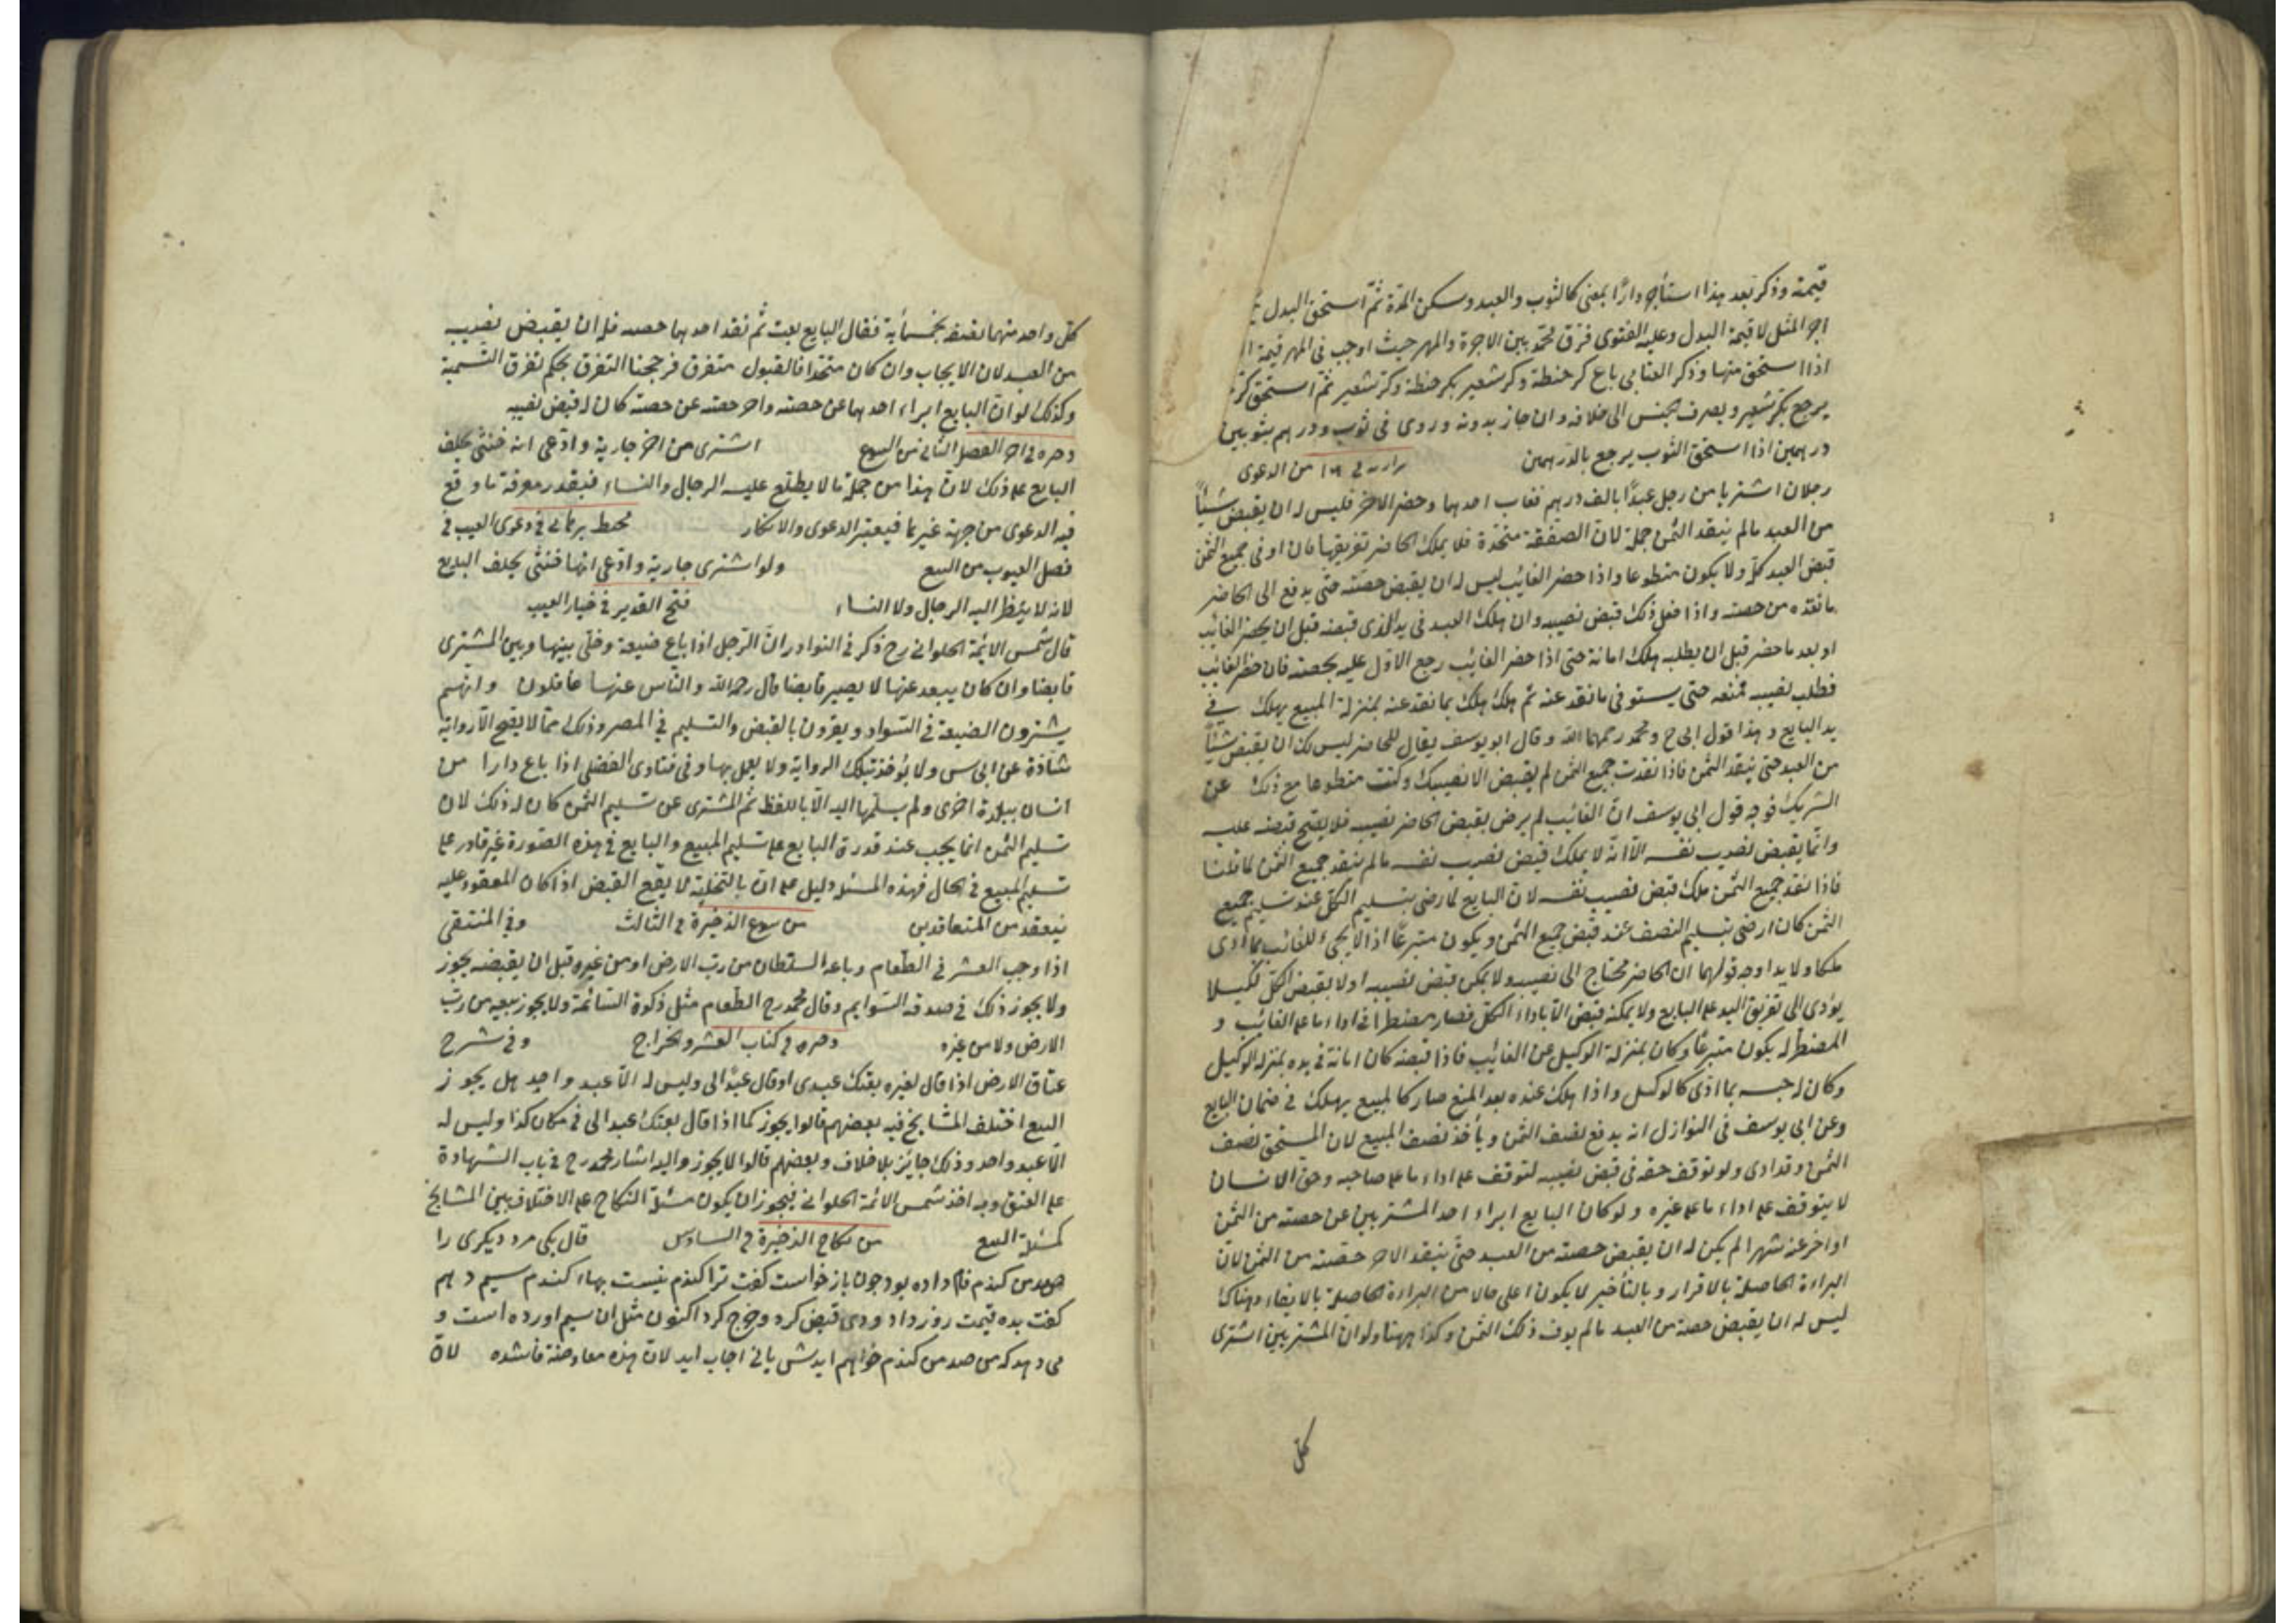 قيمته وذكر بعد هذا استأجر دارًا بمعنى كالثوب والعبد وسكن المدة ثم استحق البدل
اجر المثل لا قيمة البدل وعليه الفتوى فرق محمد بين الاجرة والمهر حيث اوجب في المهر قيمة
اذا استحق منها وذكر العتابي باع كر حنطة وكر شعير بكر حنطة وكر شعير ثم استحق كر
يرجع بكر شعير ويصرف الجنس الى خلافه وان جاز بدونه وروى في ثوب ودرهم بثوبين
درهمين اذا استحق الثوب يرجع بالدرهمين من الدعوى
رجلان اشتريا من رجل عبدًا بالف درهم فغاب احدهما وحضر الاخر فليس له ان يقبض شيئًا
من العبد مالم ينقد الثمن جملة لان الصفقة متحدة فلا يملك الحاضر تفريقها فان اوفى جميع الثمن
قبض العبد كله ولا يكون متطوعا واذا حضر الغائب ليس له ان يقبض حصته حتى يدفع الى الحاضر
ما نقده من حصته واذا فعل ذلك قبض نصيبه وان هلك العبد في يد الذي قبضه قبل ان يحضر الغائب
او بعد ما حضر قبل ان يطلبه هلك امانة حتى اذا حضر الغائب رجع الاول عليه بحصته فان حضر الغائب
فطلب نصيبه فمنعه حتى يستوفى ما نقد عنه ثم هلك هلك بما نقد عنه بمنزلة المبيع يهلك في
يد البايع وهذا قول ابى ح ومحمد رحمهما الله وقال ابو يوسف يقال للحاضر ليس لك ان يقبض شيئًا
من العبد حتى ينقد الثمن فاذا نقدت جميع الثمن لم يقبض الا نصيبك وكنت متطوعا مع ذلك عن
الشريك فوجه قول ابى يوسف ان الغائب لم يرض بقبض الحاضر نصيبه فلا يصح قبضه عليه
وانما يقبض نصيب نفسه الا انه لا يملك قبض نصيب نفسه مالم ينقد جميع الثمن لما قلنا
فاذا نقد جميع الثمن ملك قبض نصيب نفسه لان البايع لما رضى بتسليم الكل عند تسليم جميع
الثمن كان ارضى بتسليم النصف عند قبض جميع الثمن ويكون متبرعًا اذا لا يجئ للغائب بما ادى
ملكا ولا يدا وجه قولهما ان الحاضر محتاج الى نصيبه ولا يمكن قبض نصيبه اولا بقبض الكل لكيلا
يؤدى الى تفريق اليد على البايع ولا يمكنه قبض الا باداء الكل فصار مضطرا في اداء ما على الغائب و
المضطر لا يكون متبرعًا وكان بمنزلة الوكيل عن الغائب فاذا قبضه كان امانة في يده بمنزلة الوكيل
وكان له حبسه بما ادى كالوكيل واذا هلك عنده بعد المنع صار كالمبيع يهلك في ضمان البايع
وعن ابى يوسف في النوازل انه يدفع نصف الثمن ويأخذ نصف المبيع لان المستحق نصف
الثمن وقد ادى ولو توقف حقه في قبض نصيبه لتوقف على اداء ما على صاحبه وحق الانسان
لا يتوقف على اداء ما على غيره ولو كان البايع ابراء احد المشتريين عن حصته من الثمن
او اخر عنه شهرا لم يكن له ان يقبض حصته من العبد حتى ينقد الاخر حصته من الثمن لان
البراءة الحاصلة بالاقرار وبالتأخير لا يكون اعلى حالا من البراءة الحاصلة بالايفاء وهناك
ليس له ان يقبض حصته من العبد مالم يوف ذلك الثمن وكذا ههنا ولو ان المشتريين اشترى
كل
كل واحد منهما نصفه بخمسأية فقال البايع بعت ثم نقد احدهما حصته فله ان يقبض نصيبه
من العبد لان الايجاب وان كان متحدا فالقبول متفرق فرجحنا التفرق بحكم تفرق التسمية
وكذلك لو ان البايع ابراء احدهما عن حصته واخر حصته عن حصته كان له قبض نصيبه
في اخر الفصل الثاني من البيوع اشترى من اخر جارية وادعى انه خنثى يحلف
البايع على ذلك لان هذا من جملة ما لا يطلع عليه الرجال والنساء فبقدر معرفة ما وقع
فيه الدعوى من جهة غيرها فيعتبر الدعوى والانكار محيط برهاني في دعوى العيب في
فصل العيوب من البيع ولو اشترى جارية وادعى انها خنثى يحلف البايع
لانه لا ينظر اليه الرجال ولا النساء فتح القدير في خيار العيب
قال شمس الائمة الحلواني رح ذكر في النوادر ان الرجل اذا باع ضيعة وخلى بينها وبين المشترى
قابضا وان كان يبعد عنها لا يصير قابضا قال رحمه الله والناس عنها غافلون وانهم
يشترون الضيعة في السواد ويقرون بالقبض والتسليم في المصر وذلك مما لا يصح الا رواية
شاذة عن ابى س ولا يؤخذ بتلك الرواية ولا يعمل بها وفي فتاوى الفضلى اذا باع دارا من
انسان ببلدة اخرى ولم يسلمها اليه الا باللفظ ثم المشترى عن تسليم الثمن كان له ذلك لان
تسليم الثمن انما يجب عند قدرة البايع على تسليم المبيع والبايع في هذه الصورة غير قادر على
تسليم المبيع في الحال فهذه المسئلة دليل على ان بالتخلية لا يقع القبض اذا كان المعقود عليه
يبعد من المتعاقدين من بيوع الذخيرة في الثالث وفي المنتقى
اذا وجب العشر في الطعام وباعه السلطان من رب الارض او من غيره قبل ان يقبضه يجوز
ولا يجوز ذلك في صدقة السوايم وقال محمد رح الطعام مثل ذكوة السائمة ولا يجوز بيعه من رب
الارض ولا من غيره ذخيره في كتاب العشر والخراج وفي شرح
عتاق الارض اذا قال لغيره بعتك عبدى او قال عبدًا لى وليس له الا عبد واحد هل يجوز
البيع اختلف المشايخ فيه بعضهم قالوا يجوز كما اذا قال بعتك عبدا لى في مكان كذا وليس له
الا عبد واحد وذلك جايز بلا خلاف وبعضهم قالوا لا يجوز واليه اشار محمد رح في باب الشهادة
على العتق وبه اخذ شمس الائمة الحلواني فيجوز ان يكون مسئلة النكاح على الاختلاف بين المشايخ
كمسئلة البيع من نكاح الذخيرة في السادس قال يكى مرد ديكرى را
صد من كندم وام داده بود چون باز خواست كفت ترا كندم نيست بهاء كندم سيم دهم
كفت بده قيمت روز داد ودى قبض كرد وخرج كرد اكنون مثل ان سيم اورده است و
مى دهد كه من صد من كندم خواهم ايدش يا نى اجاب ايد لان هذه معاوضة فاسده لان